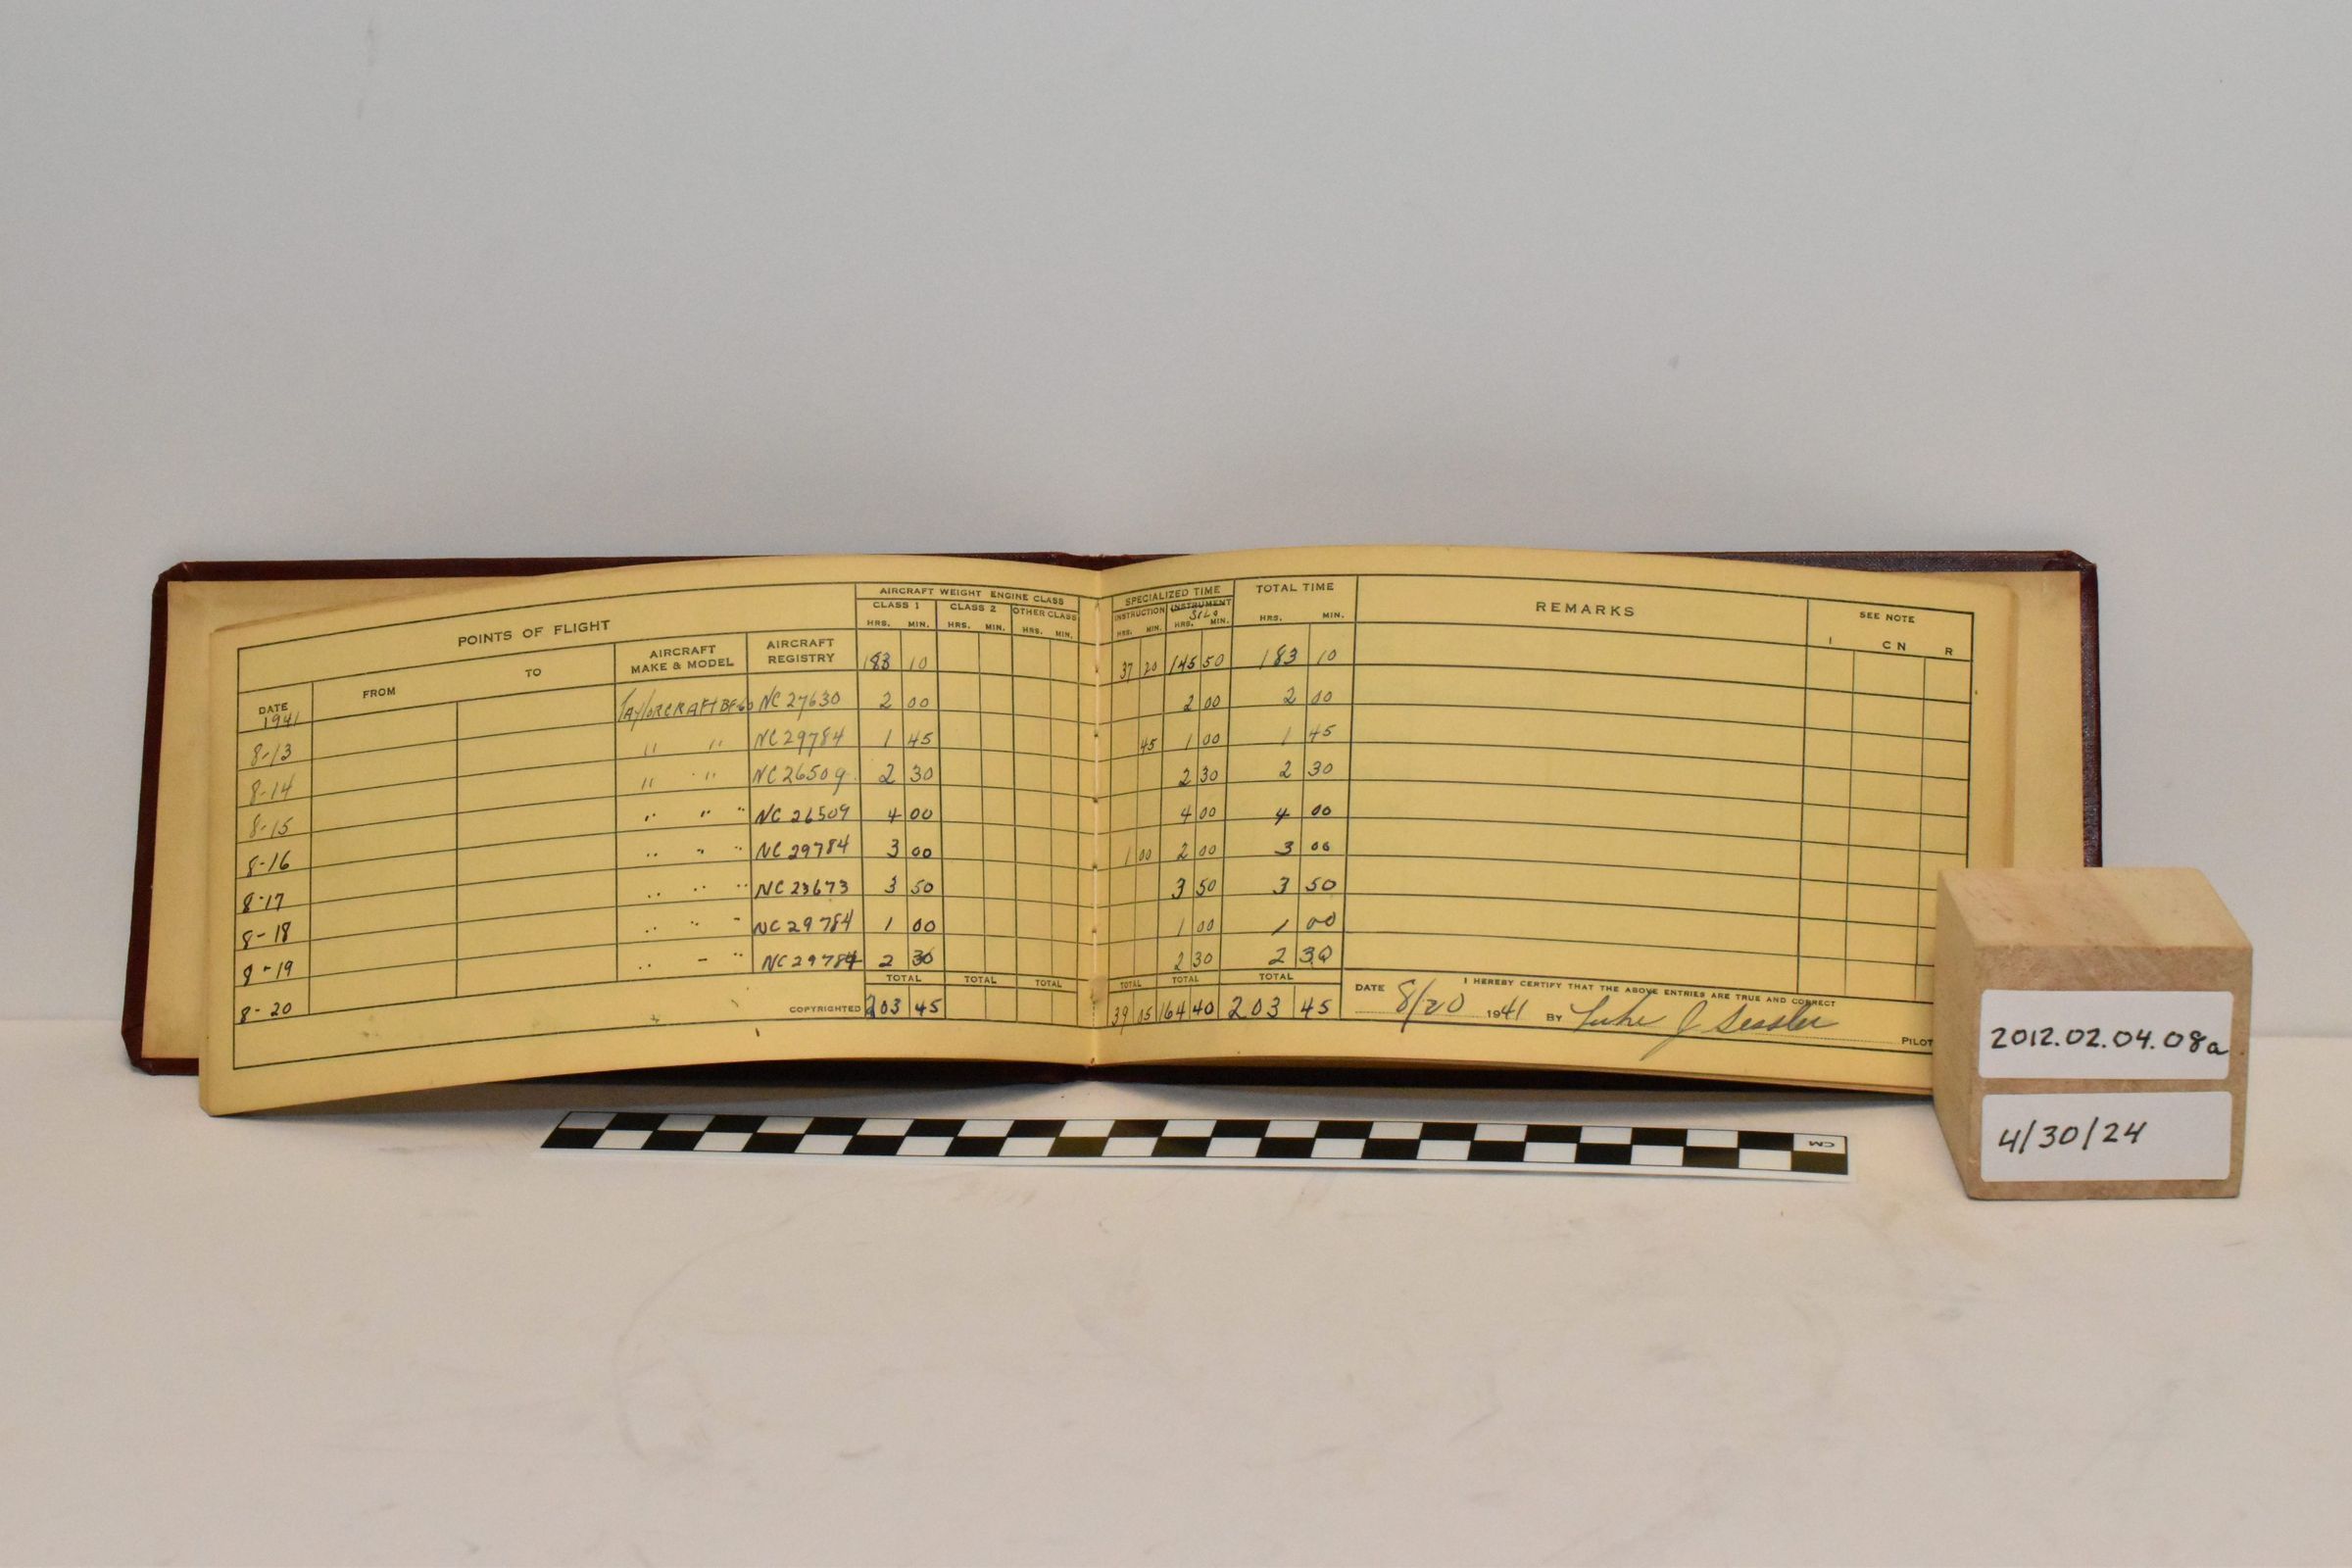 POINTS OF FLIGHT AIRCRAFT WEIGHT ENGINE CLASS SPECIALIZED TIME TOTAL TIME REMARKS SEE NOTE
CLASS 1 CLASS 2 OTHER CLASS INSTRUCTION INSTRUMENT
SOLO
HRS. MIN. HRS. MIN. HRS. MIN. HRS. MIN. HRS. MIN. HRS. MIN. I C N R
DATE FROM TO AIRCRAFT MAKE & MODEL AIRCRAFT REGISTRY 183 10 37 20 145 50 183 10
1941
8-13 TAYLORCRAFT BF60 NC 27630 2 00 2 00 2 00
8-14 " " NC 29784 1 45 45 1 00 1 45
8-15 " " NC 26509 2 30 2 30 2 30
8-16 " " " NC 26509 4 00 4 00 4 00
8-17 " " " NC 29784 3 00 1 00 2 00 3 00
8-18 " " " NC 23673 3 50 3 50 3 50
8-19 " " " NC 29784 1 00 1 00 1 00
8-20 " " " NC 29784 2 30 2 30 2 30
TOTAL TOTAL TOTAL TOTAL TOTAL TOTAL
COPYRIGHTED 203 45 39 05 164 40 203 45
I HEREBY CERTIFY THAT THE ABOVE ENTRIES ARE TRUE AND CORRECT
DATE 8/20 1941 BY Luke J Sessler PILOT
CM
2012.02.04.08a
4/30/24